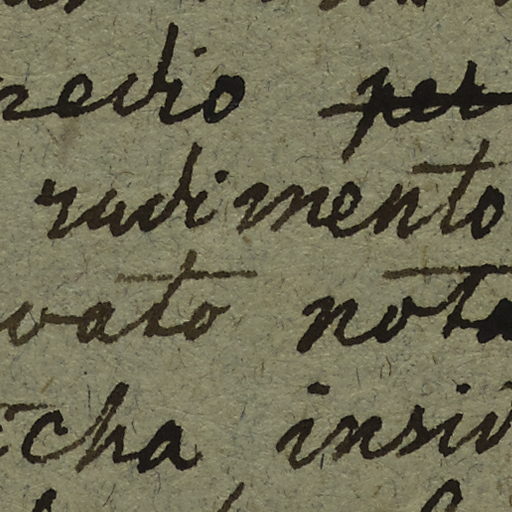 redio per
rudimento
vato nota
cha insi